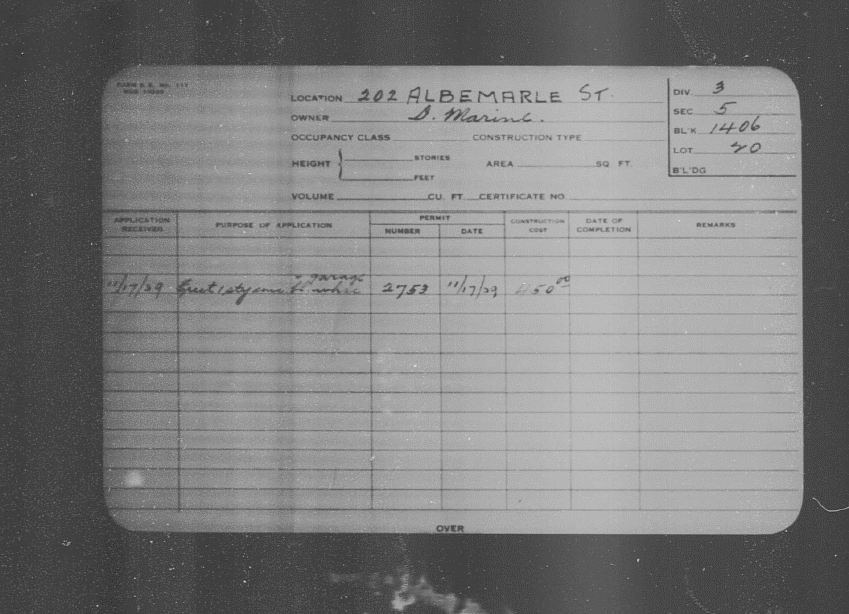 LOCATION 202 ALBEMARLE ST.
OWNER D. Marine.
OCCUPANCY CLASS CONSTRUCTION TYPE
HEIGHT { STORIES
FEET
AREA SQ. FT.
VOLUME CU. FT. CERTIFICATE NO.
DIV. 3
SEC 5
BL'K 1406
LOT 20
B'L'DG
APPLICATION RECEIVED PURPOSE OF APPLICATION PERMIT NUMBER DATE CONSTRUCTION COST DATE OF COMPLETION REMARKS
garage
11/17/29 Erect 1 sty 2753 11/17/29 450 00
OVER